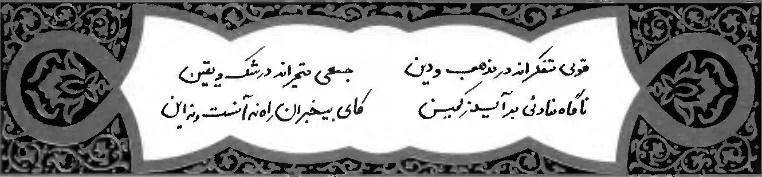 قومی متفکراند در مذهب و دین جمعی متحیراند در شک و یقین
ناگاه منادئی برآید ز کمین کای بیخبران راه نه آنست و نه این